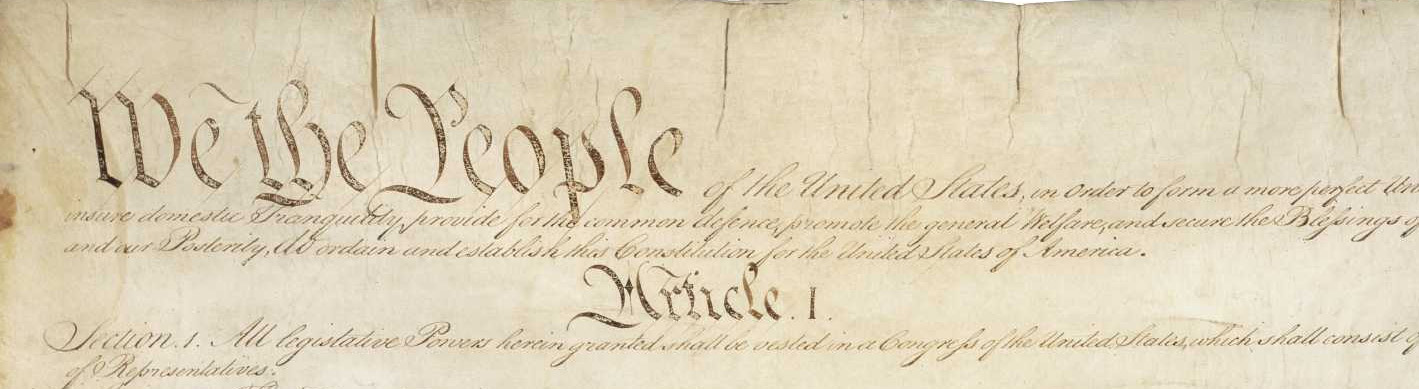 We the People of the United States, in Order to form a more perfect Un
insure domestic Tranquility, provide for the common defence, promote the general Welfare, and secure the Blessings of
and our Posterity, do ordain and establish this Constitution for the United States of America.
Article. I.
Section. 1. All legislative Powers herein granted shall be vested in a Congress of the United States, which shall consist of
of Representatives.